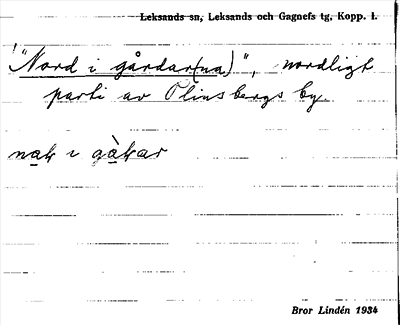 Leksands sn, Leksands och Gagnefs tg, Kopp. l.
"Nord i gårdar(na)", nordligt
parti av Olinsbergs by.
Bror Lindén 1934